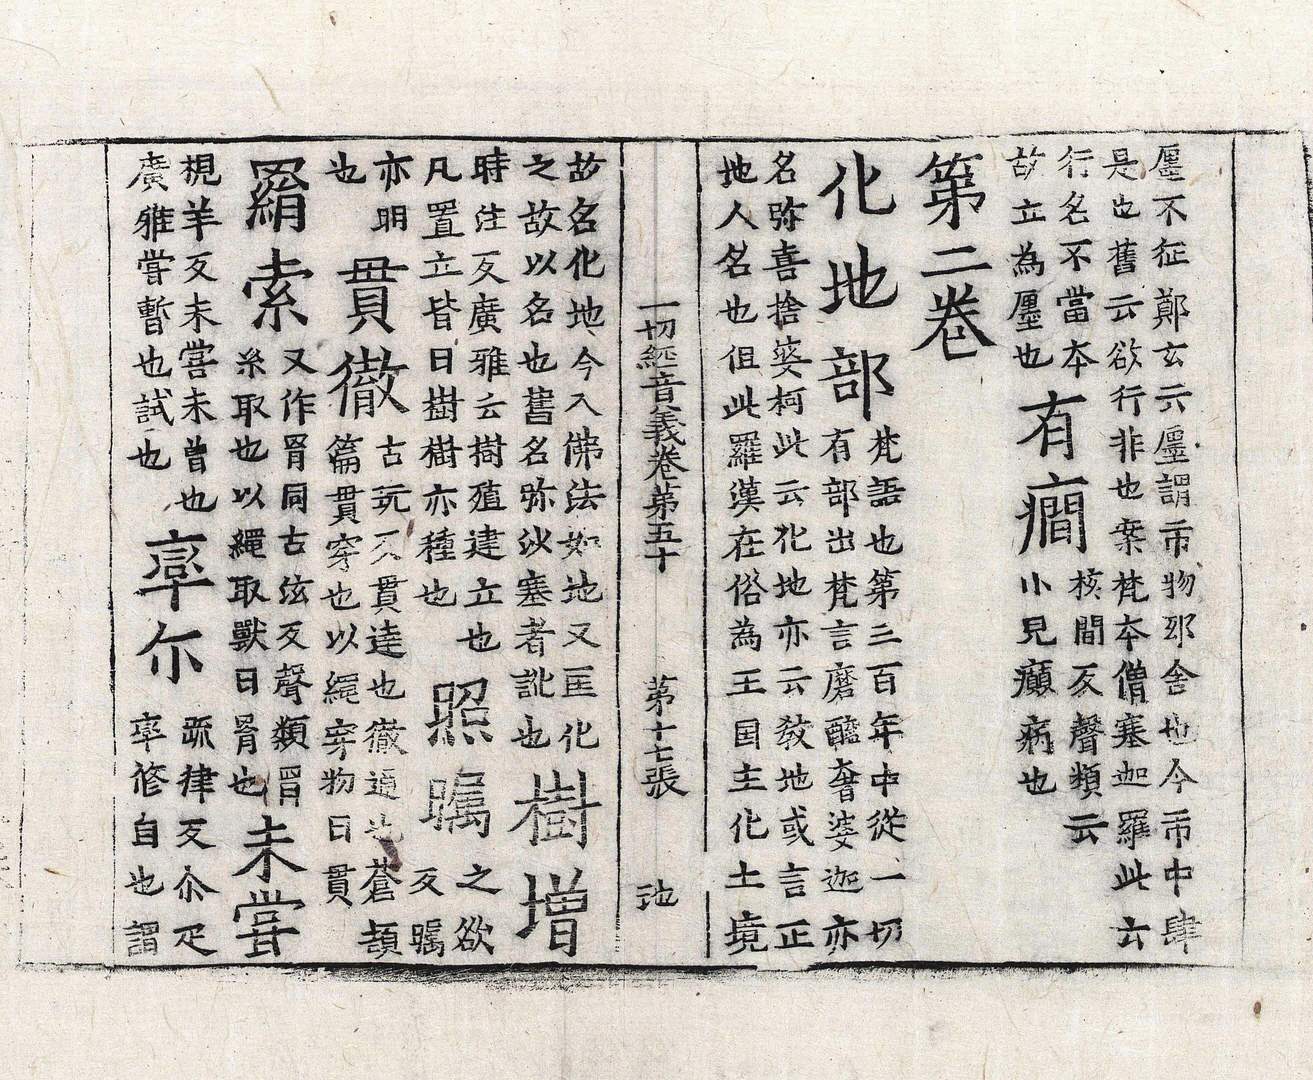 㕓不征鄭玄云㕓謂市物邸舍也今市中肆
是也舊云欲行非也案梵本僧塞迦羅此云
行名不當本
故立為㕓也
有癎
核間反聲類云
小兒癲病也
第二卷
化地部
梵語也第三百年中從一切
有部出梵言磨醯奢婆迦亦
名弥喜捨婆柯此云化地亦云教地或言正
地人名也但此羅漢在俗為王国主化土境
一切經音義卷第五十 第十七張 池
故名化地今入佛法如地又匡化
之故以名也舊名弥沙塞者訛也
樹增
時注反廣雅云樹殖建立也
凡置立皆曰樹樹亦種也
照矚
之欲
反矚
亦明
也
貫徹
古玩反貫達也徹通也蒼頡
篇貫穿也以繩穿物曰貫
羂索
又作罥同古泫反聲類罥
糸取也以繩取獸曰罥也
未甞
視羊反未甞未曾也
廣雅甞暫也試也
率尔
疏律反尒疋
率修自也謂